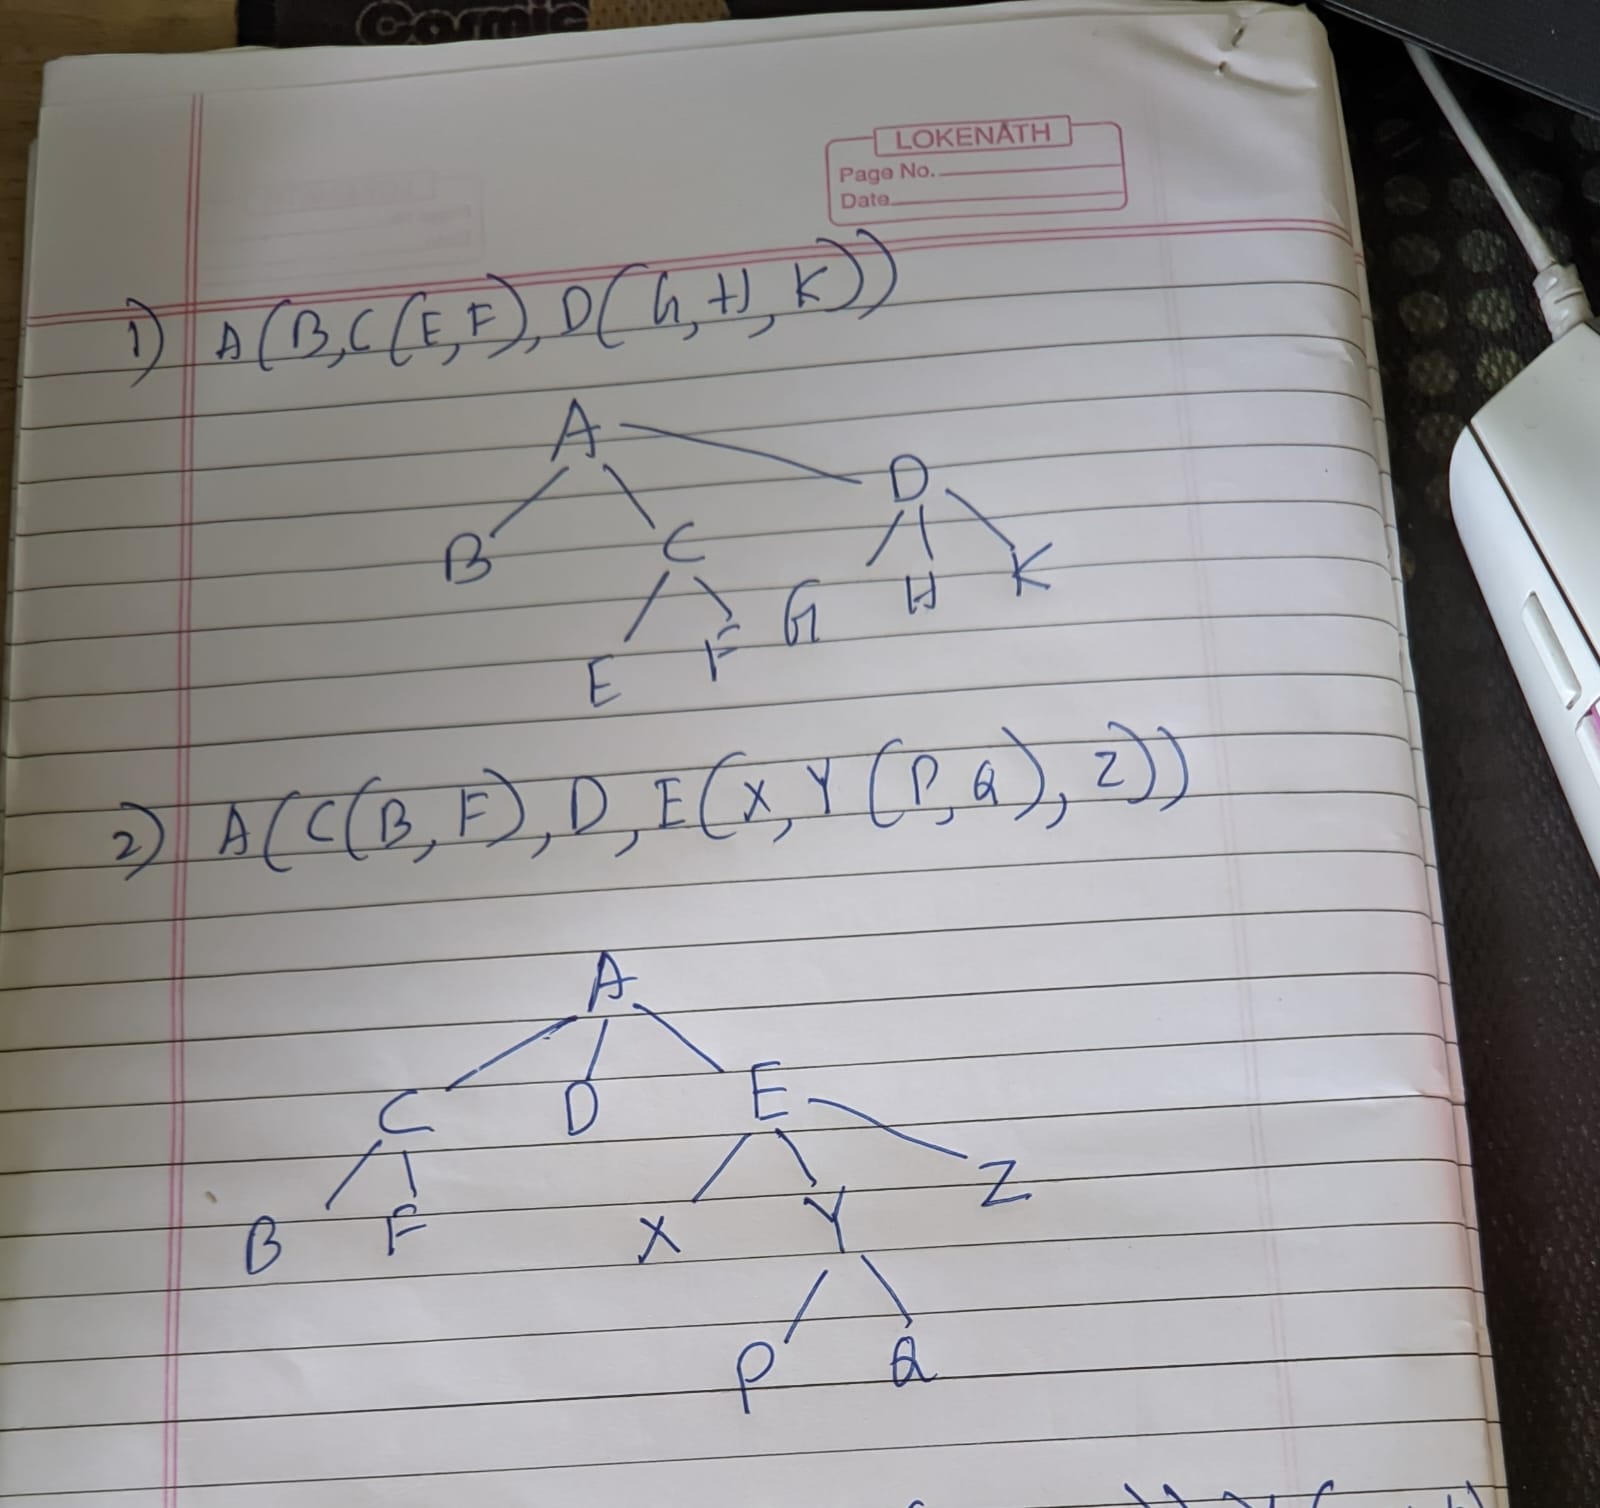 Cosmic
LOKENATH
Page No.
Date
1) A(B,C(E,F),D(G,H,K))
A
D
B C
G H K
E F
2) A(C(B,F),D,E(X,Y(P,Q),Z))
A
C D E
B F X Y Z
P Q